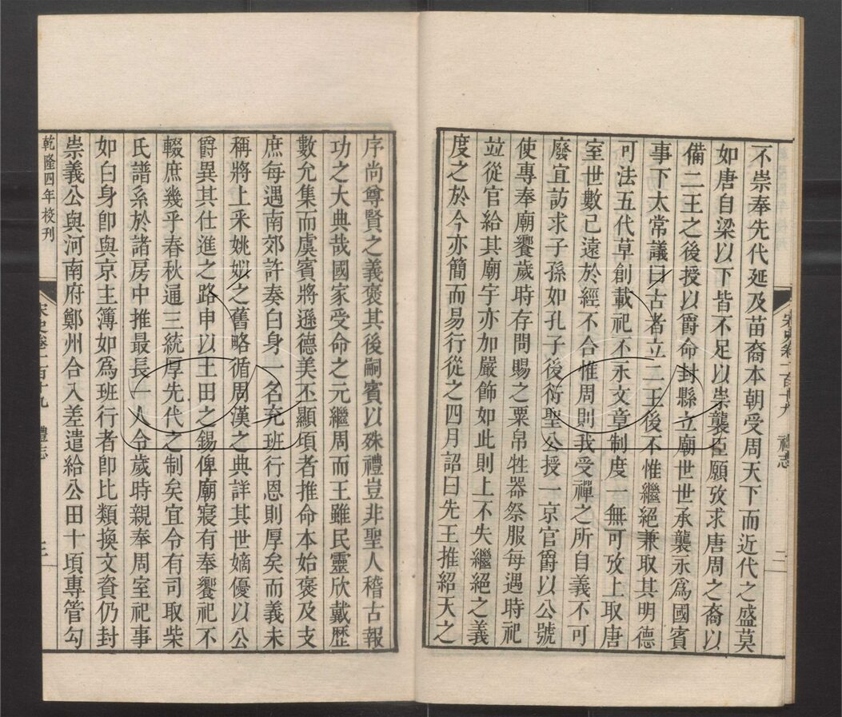 不崇奉先代延及苗裔本朝受周天下而近代之盛莫
如唐自梁以下皆不足以崇襲臣願攷求唐周之裔以
備二王之後授以爵命封縣立廟世世承襲永爲國賓
事下太常議曰古者立二王後不惟繼絕兼取其明德
可法五代草創載祀不永文章制度一無可攷上取唐
室世數已遠於經不合惟周則我受禪之所自義不可
廢宜訪求子孫如孔子後衍聖公授一京官爵以公號
使專奉廟饗歲時存問賜之粟帛牲器祭服每遇時祀
竝從官給其廟宇亦加嚴飾如此則上不失繼絕之義
度之於今亦簡而易行從之四月詔曰先王推紹天之
宋史卷一百十九 禮志 二
序尚尊賢之義褒其後嗣賓以殊禮豈非聖人稽古報
功之大典哉國家受命之元繼周而王雖民靈欣戴歷
數允集而虞賓將遜德美丕顯頃者推命本始褒及支
庶每遇南郊許奏白身一名充班行恩則厚矣而義未
稱將上釆姚姒之舊略循周漢之典詳其世嫡優以公
爵異其仕進之路申以土田之錫俾廟寢有奉饗祀不
輟庶幾乎春秋通三統厚先代之制矣宜令有司取柴
氏譜系於諸房中推最長一人令歲時親奉周室祀事
如白身卽與京主簿如爲班行者卽比類換文資仍封
崇義公與河南府鄭州合入差遣給公田十頃專管勾
乾隆四年校刊 宋史卷一百十九 禮志 三